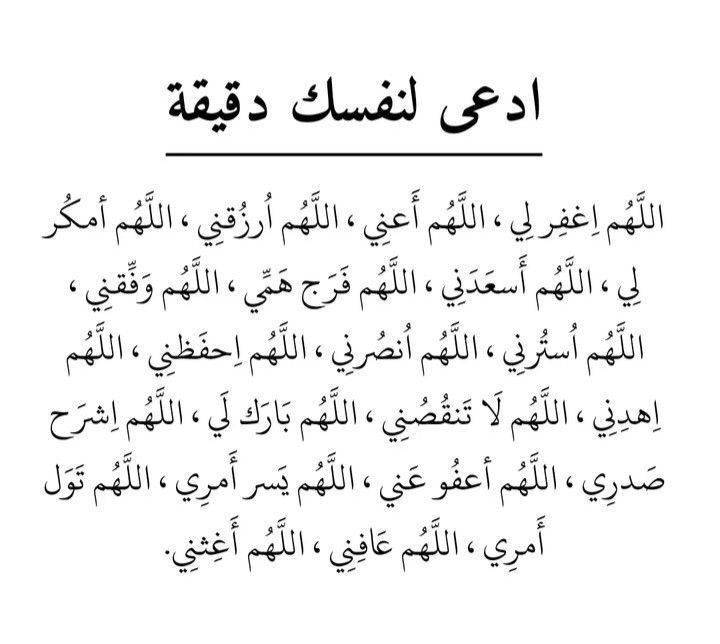 ادعى لنفسك دقيقة
اللَّهُم اِغفِر لِي ، اللَّهُم أَعنِي ، اللَّهُم اُرزُقنِي ، اللَّهُم أمكُر
لِي ، اللَّهُم أَسعَدَنِي ، اللَّهُم فَرَج هَمِّي ، اللَّهُم وَفِّقنِي ،
اللَّهُم اُستُرنِي ، اللَّهُم اُنصُرنِي ، اللَّهُم اِحفَظنِي ، اللَّهُم
اِهدِنِي ، اللَّهُم لَا تَنقُصُنِي ، اللَّهُم بَارَك لَي ، اللَّهُم اِشرَح
صَدرِي ، اللَّهُم أعفُو عَني ، اللَّهُم يَسر أَمرِي ، اللَّهُم تَوَل
أَمرِي ، اللَّهُم عَافِنِي ، اللَّهُم أَغِثنِي.